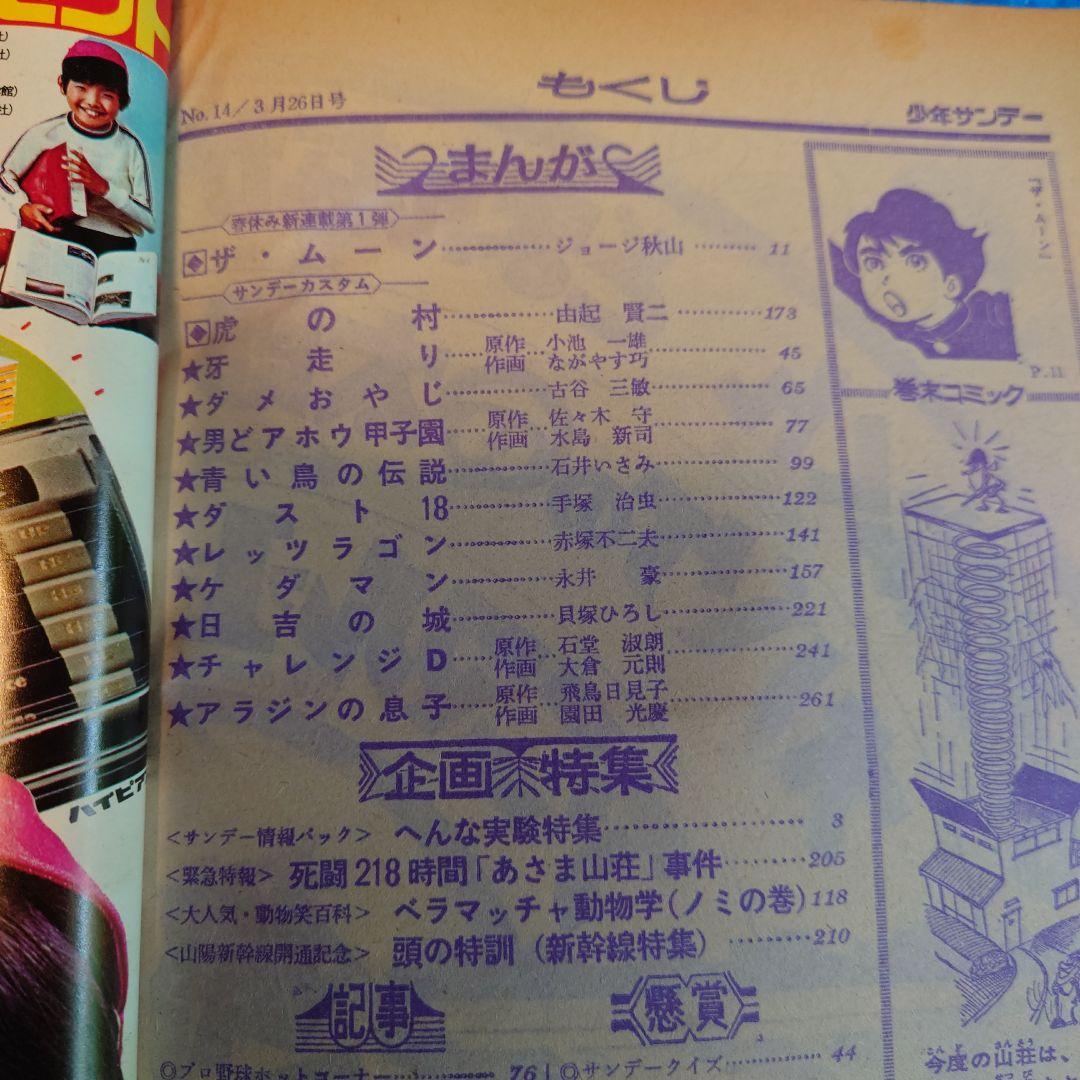 もくじ
No.14/3月26日号
少年サンデー
まんが
春休み新連載第1弾
ザ・ムーン ジョージ秋山 11
サンデーカスタム
虎の村 由起賢二 173
★牙走り 原作 小池一雄 作画 ながやす巧 45
★ダメおやじ 古谷三敏 65
★男どアホウ甲子園 原作 佐々木守 作画 水島新司 77
★青い鳥の伝説 石井いさみ 99
★ダスト18 手塚治虫 122
★レッツラゴン 赤塚不二夫 141
★ケダマン 永井豪 157
★日吉の城 貝塚ひろし 221
★チャレンジD 原作 石堂淑朗 作画 大倉元則 241
★アラジンの息子 原作 飛鳥日見子 作画 園田光慶 261
企画特集
<サンデー情報パック> へんな実験特集 3
<緊急特報> 死闘218時間「あさま山荘」事件 205
<大人気・動物笑百科> ベラマッチャ動物学(ノミの巻) 118
<山陽新幹線開通記念> 頭の特訓(新幹線特集) 210
記事
◎プロ野球ホットコーナー 76
懸賞
◎サンデークイズ 44
「ザ・ムーン」
P.11
巻末コミック
今度の山荘は、
館)
社)
ハイピア